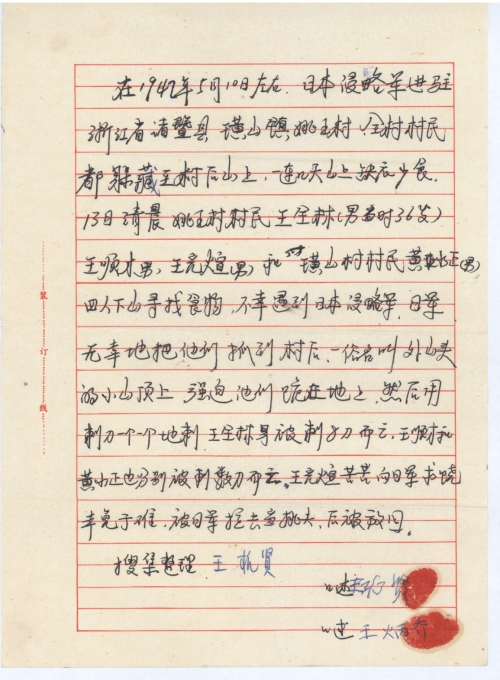 在1942年5月10日左右、日本侵略军进驻
浙江省诸暨县 璜山镇姚王村、全村村民
都躲藏至村后山上,一连几天山上缺衣少食、
13日清晨 姚王村村民王全林(男当时36岁)
王顺木(男)、王亮煊(男)和 璜山村村民黄正(男)
四人下山寻找食物、不幸遇到日本侵略军、日军
无辜地把他们抓到村后、一俗名叫外山头
的小山顶上 强迫他们跪在地上、然后用
刺刀一个一个地刺 王全林身被刺刀而亡、王顺和
黄小正也分别被刺数刀而亡、王亮煊苦苦向日军求饶
幸免于难、被日军拉去当挑夫、后被放回。
搜集整理 王贤
口述 贤
口述 王炳乔
装
订
线